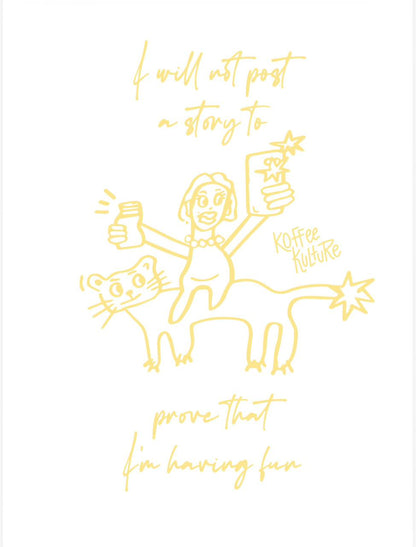 I will not post
a story to
Koffee
Kulture
prove that
I'm having fun